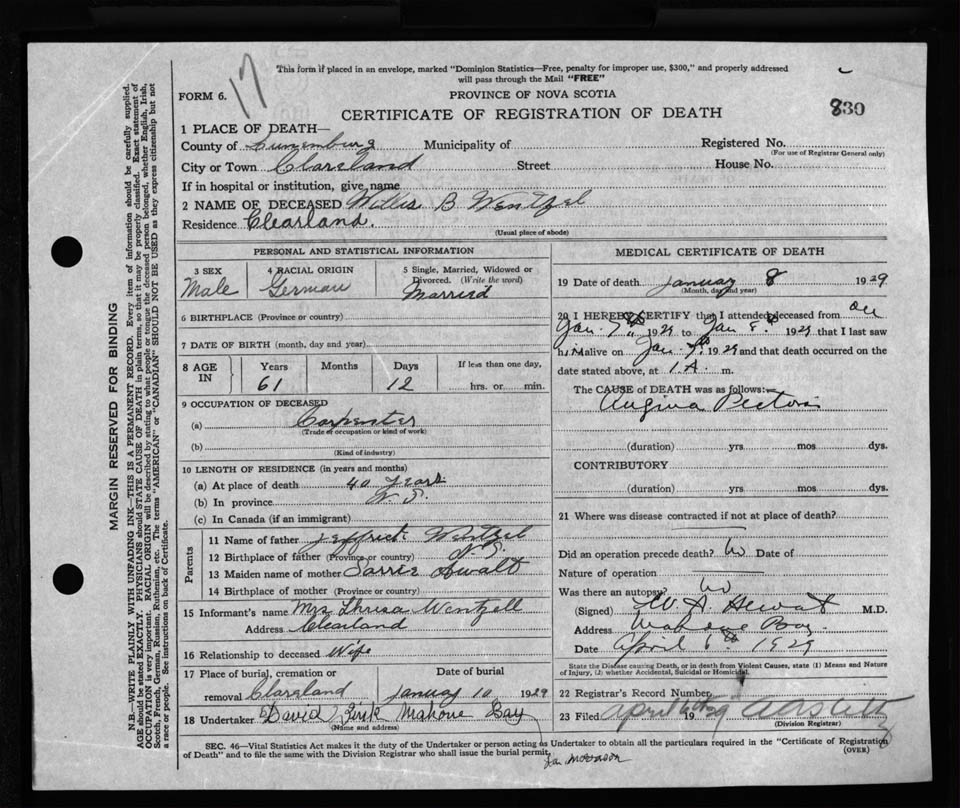 17
This form if placed in an envelope, marked "Dominion Statistics—Free, penalty for improper use, $300," and properly addressed
will pass through the Mail "FREE"
FORM 6.
PROVINCE OF NOVA SCOTIA
CERTIFICATE OF REGISTRATION OF DEATH
830
1 PLACE OF DEATH—
County of Lunenburg Municipality of Registered No.
(For use of Registrar General only)
City or Town Clearland Street House No.
If in hospital or institution, give name
2 NAME OF DECEASED Willis B Wentzel
Residence Clearland.
(Usual place of abode)
PERSONAL AND STATISTICAL INFORMATION
3 SEX
Male
4 RACIAL ORIGIN
German
5 Single, Married, Widowed or
Divorced. (Write the word)
Married
6 BIRTHPLACE (Province or country)
7 DATE OF BIRTH (month, day and year)
8 AGE IN
Years Months Days If less than one day,
61 12 hrs. or min.
9 OCCUPATION OF DECEASED
(a) Carpenter
(Trade or occupation or kind of work)
(b)
(Kind of industry)
10 LENGTH OF RESIDENCE (in years and months)
(a) At place of death 40 Years
(b) In province N. S.
(c) In Canada (if an immigrant)
Parents
11 Name of father Wentzel
12 Birthplace of father (Province or country) N S.
13 Maiden name of mother
14 Birthplace of mother (Province or country)
15 Informant's name Mrs Wentzell
Address Clearland
16 Relationship to deceased Wife
17 Place of burial, cremation or Date of burial
removal Clearland January 10 1929
18 Undertaker David Mahone Bay
(Name and address)
MEDICAL CERTIFICATE OF DEATH
19 Date of death January 8 1929
(Month, day and year)
20 I HEREBY CERTIFY that I attended deceased from on
Jan. 7th 1929 to Jan 8th 1929 that I last saw
him alive on Jan. 7th 1929 and that death occurred on the
date stated above, at 1 A. m.
The CAUSE of DEATH was as follows:—
Angina Pectoris
(duration) yrs mos dys.
CONTRIBUTORY
(duration) yrs mos dys.
21 Where was disease contracted if not at place of death?
Did an operation precede death? No Date of
Nature of operation
Was there an autopsy? No
(Signed) M.D.
Address Mahone Bay
Date April 6th 1929
State the Disease causing Death, or in death from Violent Causes, state (1) Means and Nature
of Injury, (2) whether Accidental, Suicidal or Homicidal.
22 Registrar's Record Number
23 Filed April 19
(Division Registrar)
SEC. 46—Vital Statistics Act makes it the duty of the Undertaker or person acting as Undertaker to obtain all the particulars required in the "Certificate of Registration
of Death" and to file the same with the Division Registrar who shall issue the burial permit.
(OVER)
MARGIN RESERVED FOR BINDING
N.B.—WRITE PLAINLY WITH UNFADING INK—THIS IS A PERMANENT RECORD. Every item of information should be carefully supplied.
AGE should be stated EXACTLY. PHYSICIANS should STATE CAUSE OF DEATH in plain terms, so that it may be properly classified. Exact statement of
OCCUPATION is very important. RACIAL ORIGIN will be described by stating to what people or tongue the deceased person belonged, whether English, Irish,
Scotch, French, German, Russian, Ruthenian, etc. The terms "AMERICAN" or "CANADIAN" SHOULD NOT BE USED as they express citizenship but not
a race or people. See instructions on back of Certificate.